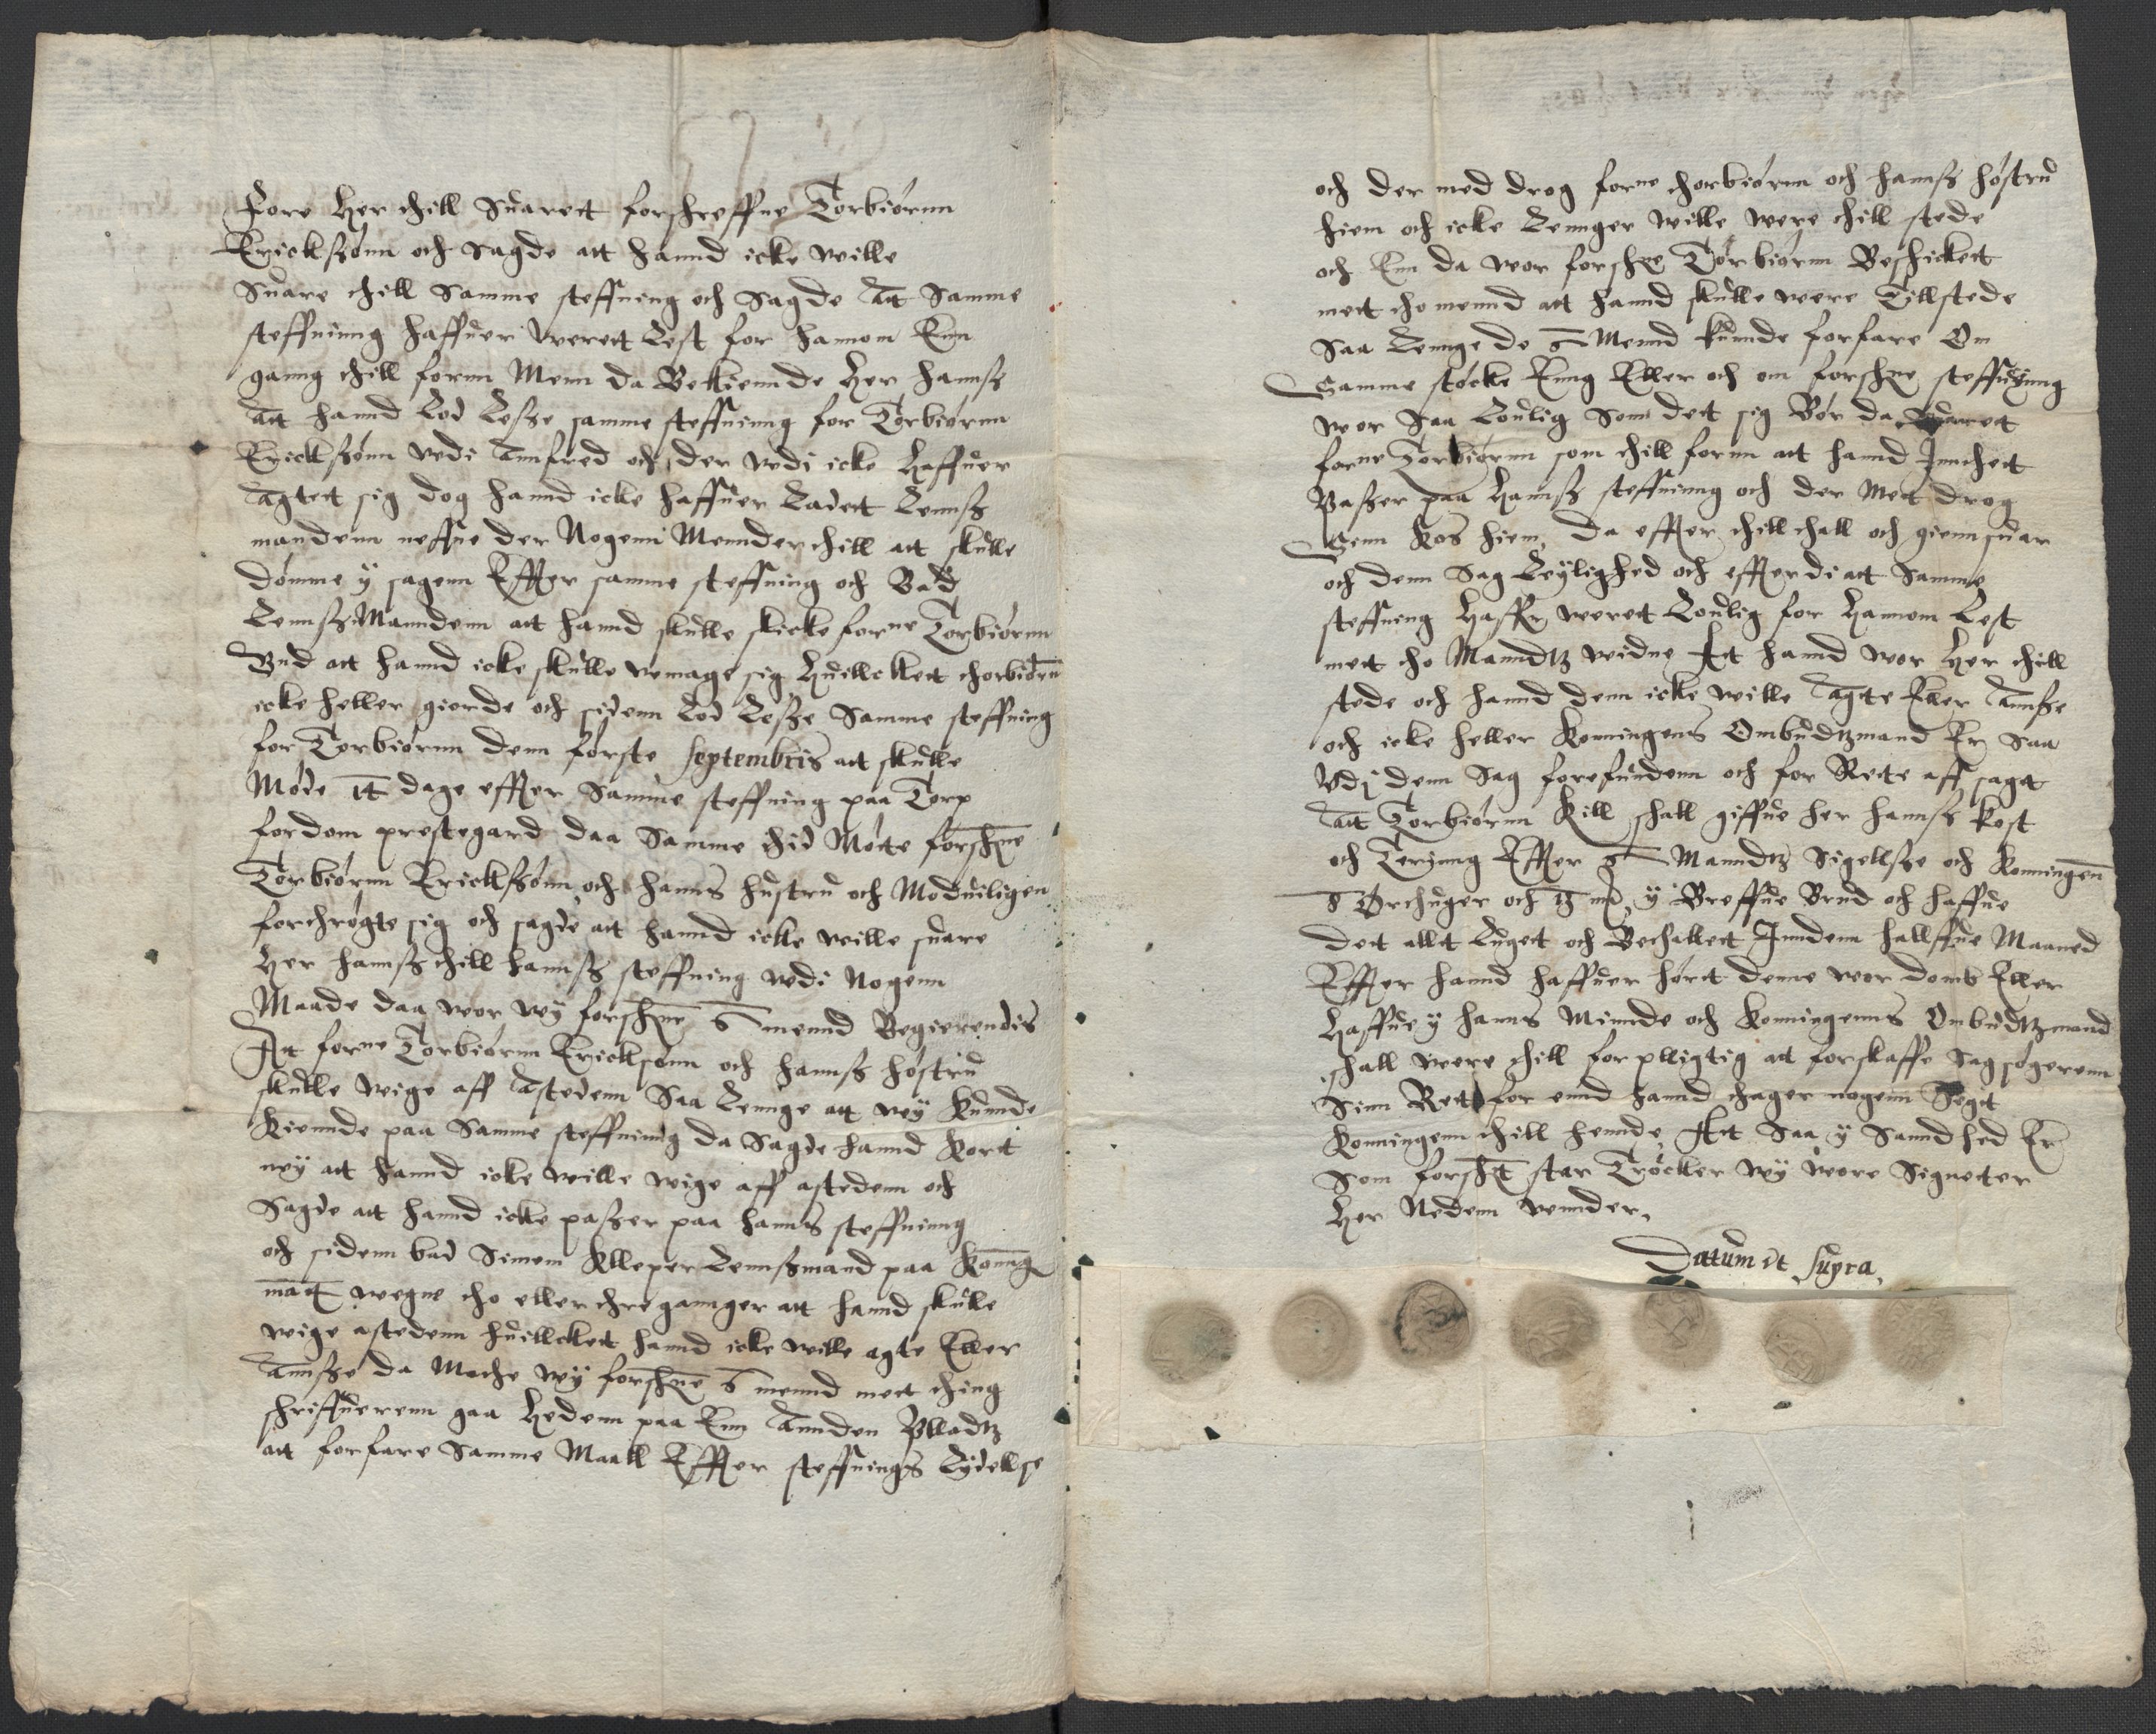 Fore Her thill Suarett forschreffne Torbiørnn
Erickßønn och sagde att hannd icke wille
Suare thill Samme steffning och Sagde att Samme
steffninng haffuer werett Lest for hannom Enn
ganng thill fornn Menn da Bekiennde Her Hannß
att hannd Lod Leße samme steffninng for Torbiørnn
Erickßønn vdi annfred och der vdi icke Haffuer
agtett sig dog hannd icke haffuer Ladett Lennß
mandenn neffne der Nogenn Mennder thill att skulle
dømme ÿ sagenn Effter samme steffning och Bad
Lennß Manndenn att hannd skulle skicke forne Torbiørnn
Bud att hannd icke skulle vmage sig Huillckett thorbiørnn
icke heller giorde och sidenn Lod Leße Samme steffning
for Torbiørnn denn første septembris att skulle
Møde 14 dage effter Samme steffning paa Torp
fordom prestegard daa Samme thid Møtte forschne
Torbiørnn Erickßønn och hanns hustru och Moduiligen
forthrøgte sig och sagde att hannd icke wille suare
Her Hannß thill hannß steffning vdi Nogenn
Maade daa wor wÿ forschne 6 mennd Begierendis
Att forne Torbiørnn Ericksønn och hannß høstru
skulle wige aff astedenn Saa Lennge att wÿ kunnde
Kiennde paa Samme steffninng da Sagde hannd kortt
neÿ att hannd icke wille wige aff astedenn och
Sagde att hannd icke paßer paa hanns steffninng
och sidenn bad Simen Klleper Lennßmand paa Konng
matt wegne tho eller thre gannger att hannd skulle
wige astedenn huillckett hannd icke wille agte Eller
annße da Mothe wÿ forschne 6 mennd mett thing
schriffuerenn gaa Hedenn paa Enn annden Plladtz
att forfare Samme Maall Effter steffnings Lÿdellse
och der med drog forne thorbiørnn och hannß høstru
hiem och icke Lennger wille were thill stede
och Enn da wor forschne Torbiørnn Beschickett
mett tho mennd att hannd skulle were Tillstede
Saa Lennge de 6 Mennd kunnde forfare Om
Samme støcke Enng Eller och om forschne steffninng
wor Saa Loulig Som dett sig Bør da
forne Torbiørnn som thill fornn att hannd Inthett
Paßer paa Hannß steffninng och der Mett drog
Senn Kos hiem, Da effter thill thall och giennsuar
och denn Sag Leÿlighed och effterdi att Samme
steffning Haffr werett Loulig for Hannom Lest
mett tho Manndtz widne Att hannd wor Her thill
stede och hannd denn icke wille agte Eller annße
och icke heller Konningens Ombudtzmand Er Saa
Vdj denn Sag forefundenn och for Rette aff sagt
att Torbiørnn Kill schall giffue her Hannß kost
och Teringg Effter 6 Manndtz Sigellße och Konningenn
8 Ørthuger och 13 mrk ÿ Breffue Brud och haffue
dett allt Luget och Bethallett Inndenn hallffue Maaned
Effter hannd haffuer hørtt denne wor doms Eller
Haffue ÿ hanns Minnde och Konningenns Ombudtzmand
schall were thill forplligtig att forskaffe sagsøgerenn
Sinn Rett for ennd hannd thager nogenn Sagt
Konningenn thill hennde, Att Saa ÿ Sanndhed Er
Som forscht star Trøcker wÿ wore Signeter
Her Nedenn vnnder.
Dattum vt supra